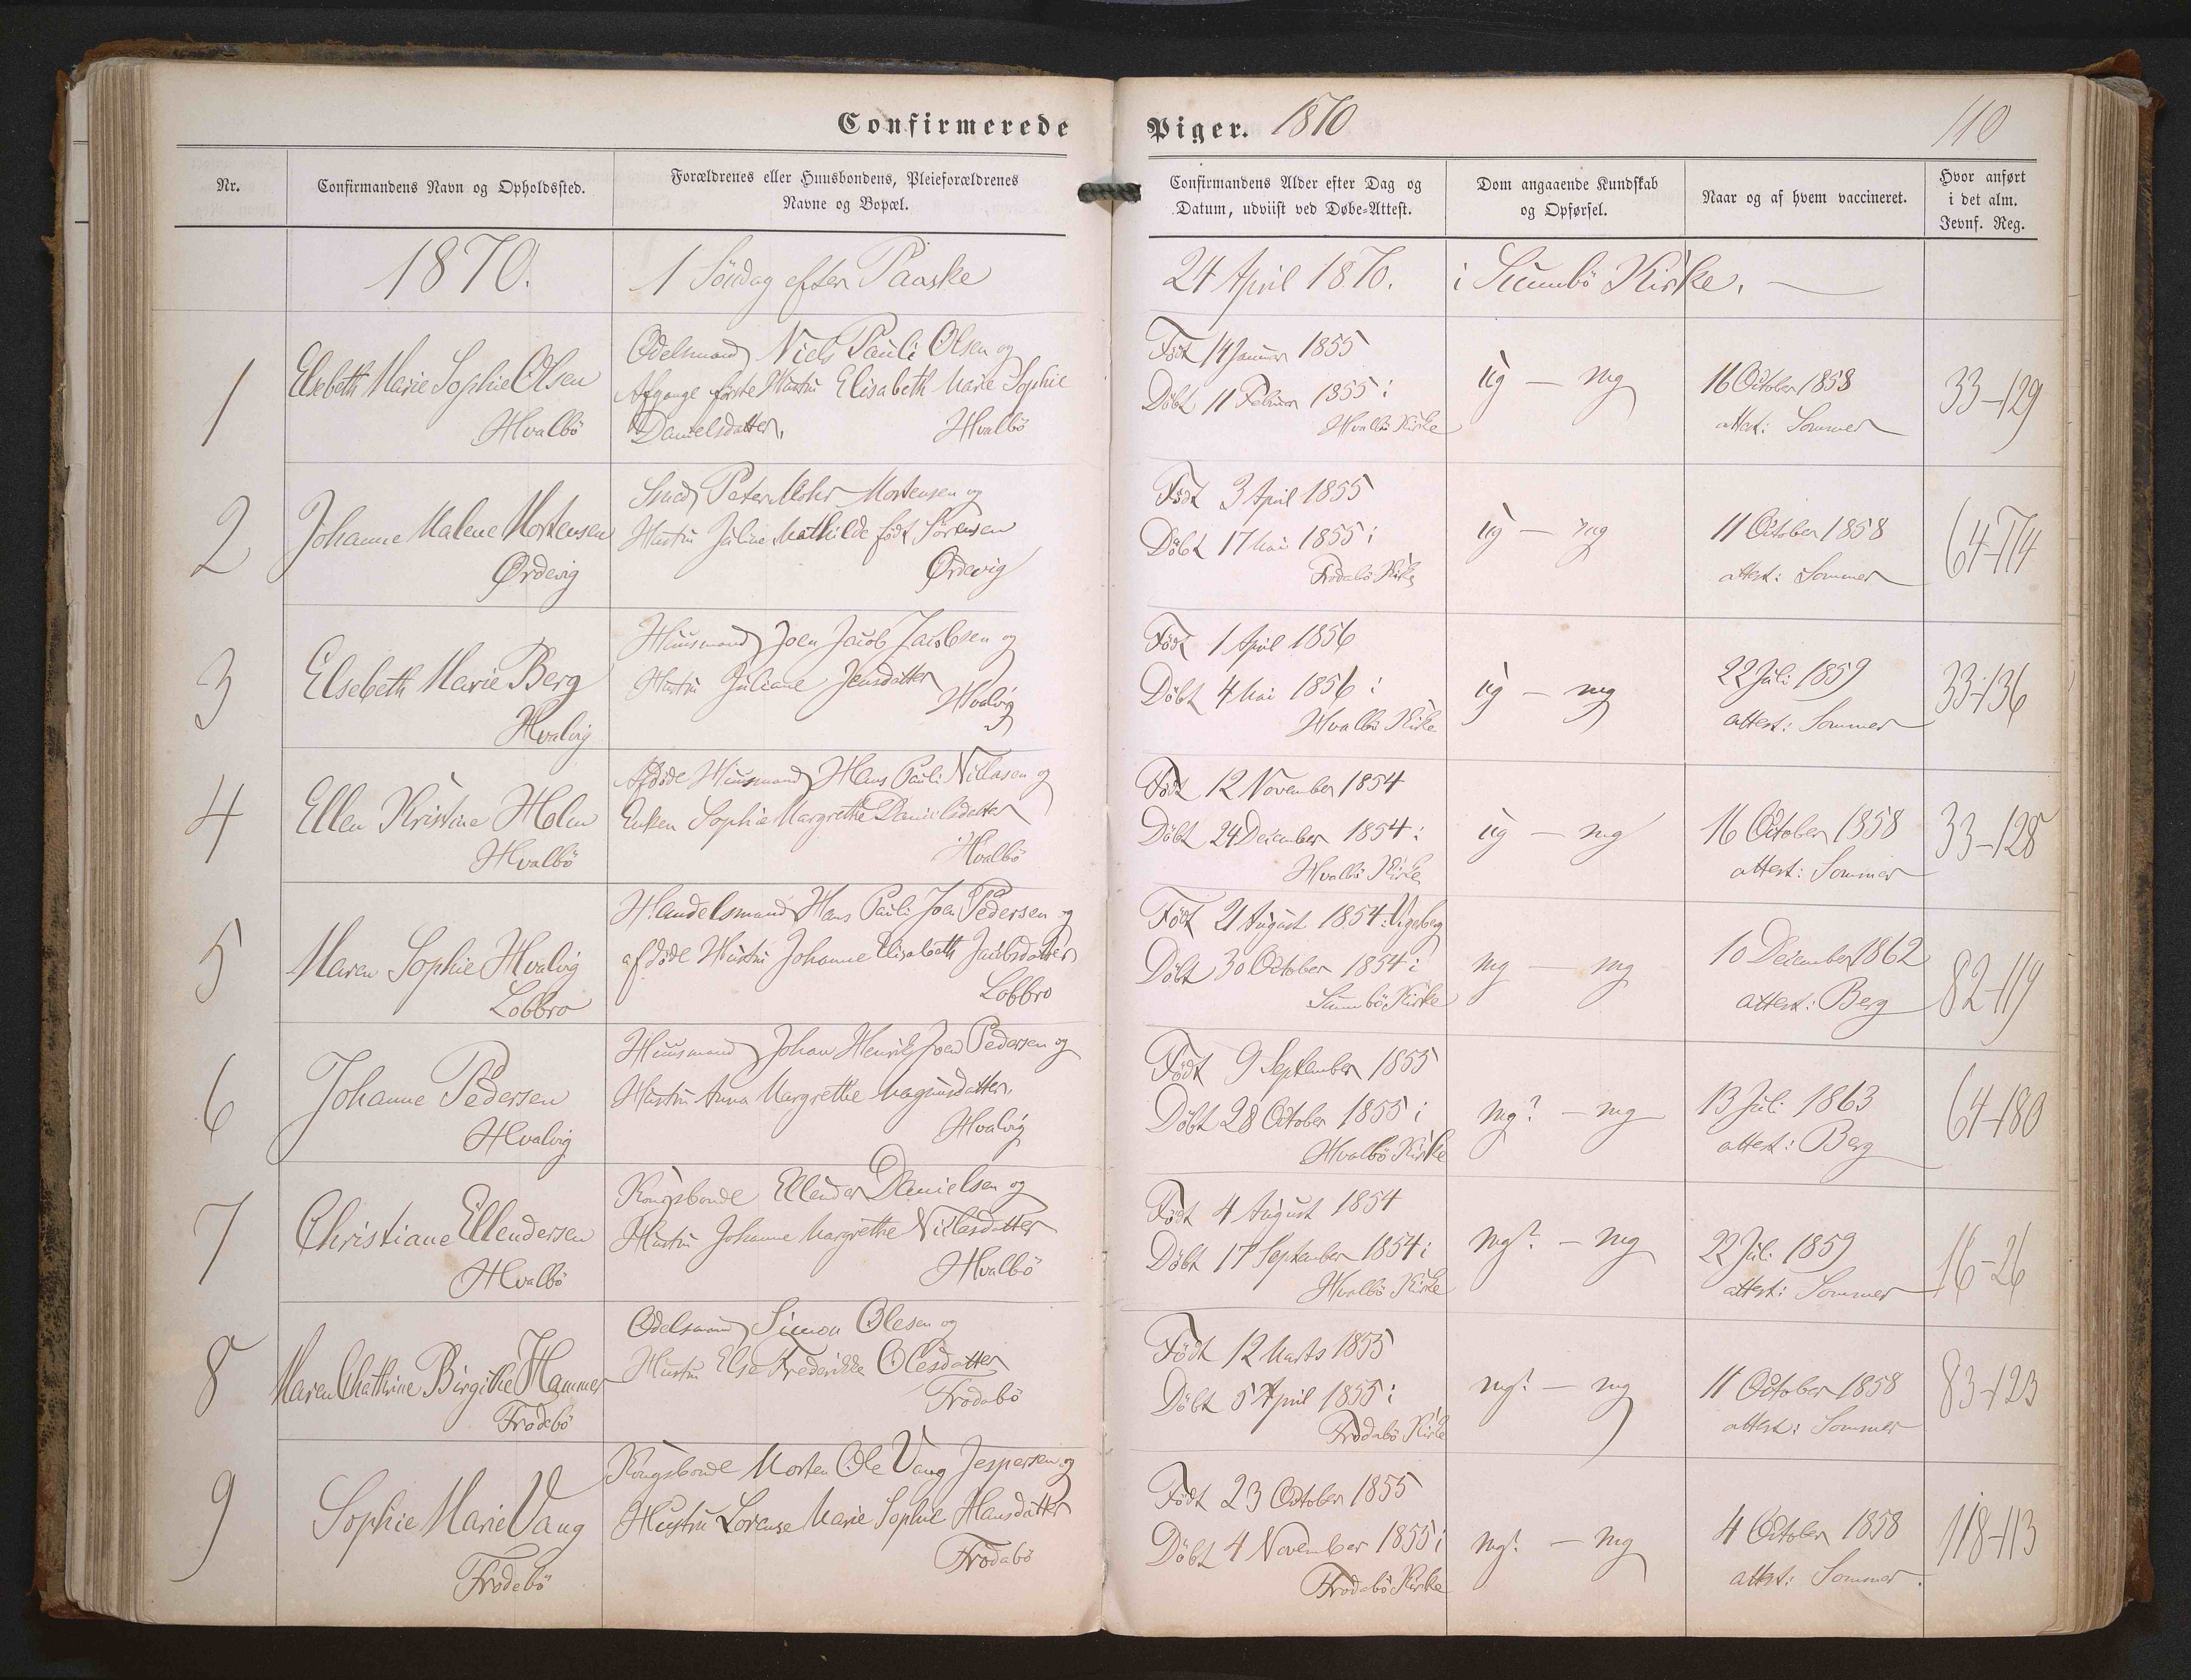 Confirmerede
Piger. 1870
110
Nr.
Confirmandens Navn og Opholdssted.
Forældrenes eller Huusbondens, Pleieforældrenes
Navne og Bopæl.
Confirmandens Alder efter Dag og
Datum, udviist ved Døbe-Attest.
Dom angaaende Kundskab
og Opførsel.
Naar og af hvem vaccineret.
Hvor anført
i det alm.
Jevnf. Reg.
1870.
1 Söndag efter Paaske
24 April 1870.
i Sumbö Kirke.
1
Elsebeth Marie Sophie Olsen
Hvalbö
Odelsmand Niels Pauli Olsen og
Afgangne første Hustru Elisabeth Marie Sophie
Danielsdatter,
Hvalbö
Født 14 Januar 1855
Døbt 11 Februar 1855 i
Hvalbö Kirke
ug — mg
16 October 1858
attest: Sommer
33-129
2
Johanne Malene Mortensen
Ørdevig
Smed Peter Mohr Mortensen og
Hustru Juline Mathilde født Sörensen
Ørdevig
Født 3 April 1855
Døbt 17 Mai 1855 i
Frodebö Kirke
ug — mg
11 October 1858
attest: Sommer
64-174
3
Elsebeth Marie Berg
Hvalvig
Huusmand Joen Jacob Jacobsen og
Hustru Juliane Jensdatter
Hvalvig
Født 1 April 1856
Døbt 4 Mai 1856 i
Hvalbö Kirke
ug — mg
22 Juli 1859
attest: Sommer
33-136
4
Ellen Kristine Holm
Hvalbö
Afdøde Huusmand Hans Pauli Niclasen og
Enken Sophie Margrethe Danielsdatter
Hvalbö
Født 12 November 1854
Døbt 24 December 1854 i
Hvalbö Kirke
ug — mg
16 October 1858
attest: Sommer
33-128
5
Maren Sophie Hvalvig
Lobbro
Handelsmand Hans Pauli Joen Pedersen og
afdøde Hustru Johanne Elisabeth Jacobsdatter
Lobbro
Født 21 August 1854 i Vigeberg
Døbt 30 October 1854 i
Sumbö Kirke
mg — mg
10 December 1862
attest: Berg
82-119
6
Johanne Pedersen
Hvalvig
Huusmand Johan Henrik Joen Pedersen og
Hustru Anna Margrethe Magnusdatter,
Hvalvig
Født 9 September 1855
Døbt 28 October 1855 i
Hvalbö Kirke
mg? — mg
13 Juli 1863
attest: Berg
64-180
7
Christiane Ellendersen
Hvalbö
Kongsbonde Ellender Danielsen og
Hustru Johanne Margrethe Niclasdatter
Hvalbö
Født 4 August 1854
Døbt 17 September 1854 i
Hvalbö Kirke
mg? — mg
22 Juli 1859
attest: Sommer
16-26
8
Maren Chathrine Birgithe Hammer
Frodebö
Odelsmand Simon Olesen og
Hustru Else Frederikke Olesdatter
Frodebö
Født 12 Marts 1855
Døbt 5 April 1855 i
Frodebö Kirke
mg? — mg
11 October 1858
attest: Sommer
83-123
9
Sophie Marie Vang
Frodebö
Kongsbonde Morten Ole Vang Jespersen og
Hustru Lorense Marie Sophie Hansdatter
Frodebö
Født 23 October 1855
Døbt 4 November 1855 i
Frodebö Kirke
mg? — mg
4 October 1858
attest: Sommer.
118-113